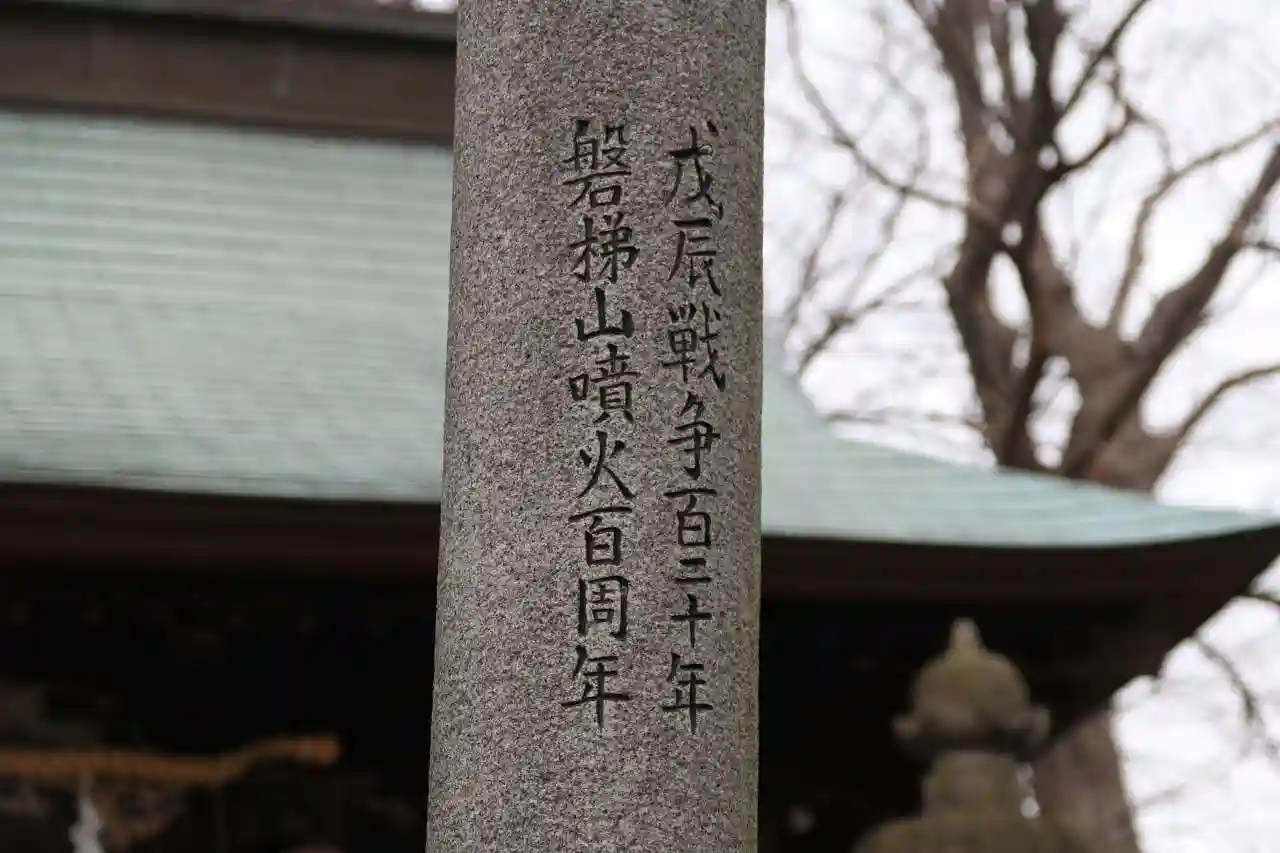 戊辰戦争百二十年
磐梯山噴火百周年